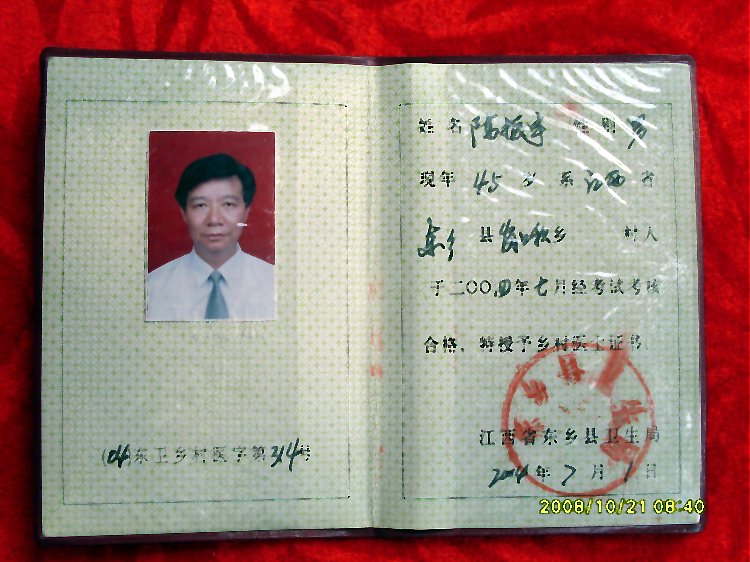 (04)东卫乡村医字第314号
姓名 陈振宇 性别 男
现年 45 岁 系 江西 省
东乡 县 乡 村人
于二〇〇四年七月经考试考核
合格，特授予乡村医士证书。
江西省东乡县卫生局
2004年7月1日
2008/10/21 08:40